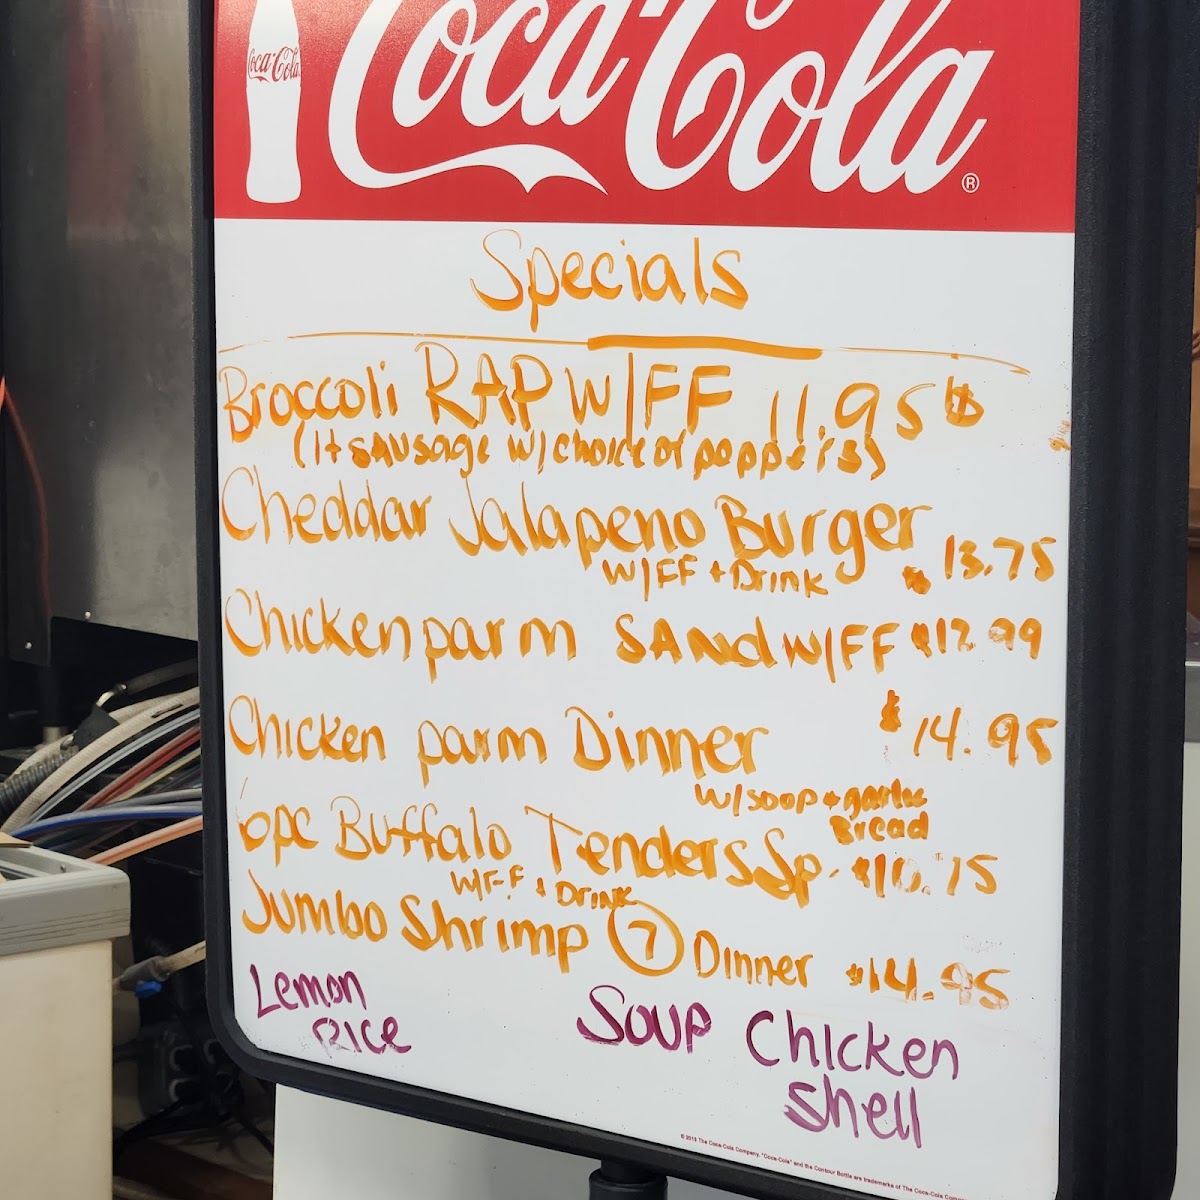 Coca-Cola
Coca-Cola®
Specials
Broccoli RAP W/FF 11.95 $
(It sausage w/choice of peppers)
Cheddar Jalapeno Burger
W/FF + Drink $13.75
Chicken parm SANd W/FF $12.99
Chicken parm Dinner $14.95
W/soop + garlic
Bread
6pc Buffalo Tenders Sp. $10.75
W/F-F & Drink
Jumbo Shrimp 7 Dinner $14.95
Lemon
RICE
Soup Chicken
Shell
© 2015 The Coca-Cola Company. "Coca-Cola" and the Contour Bottle are trademarks of The Coca-Cola